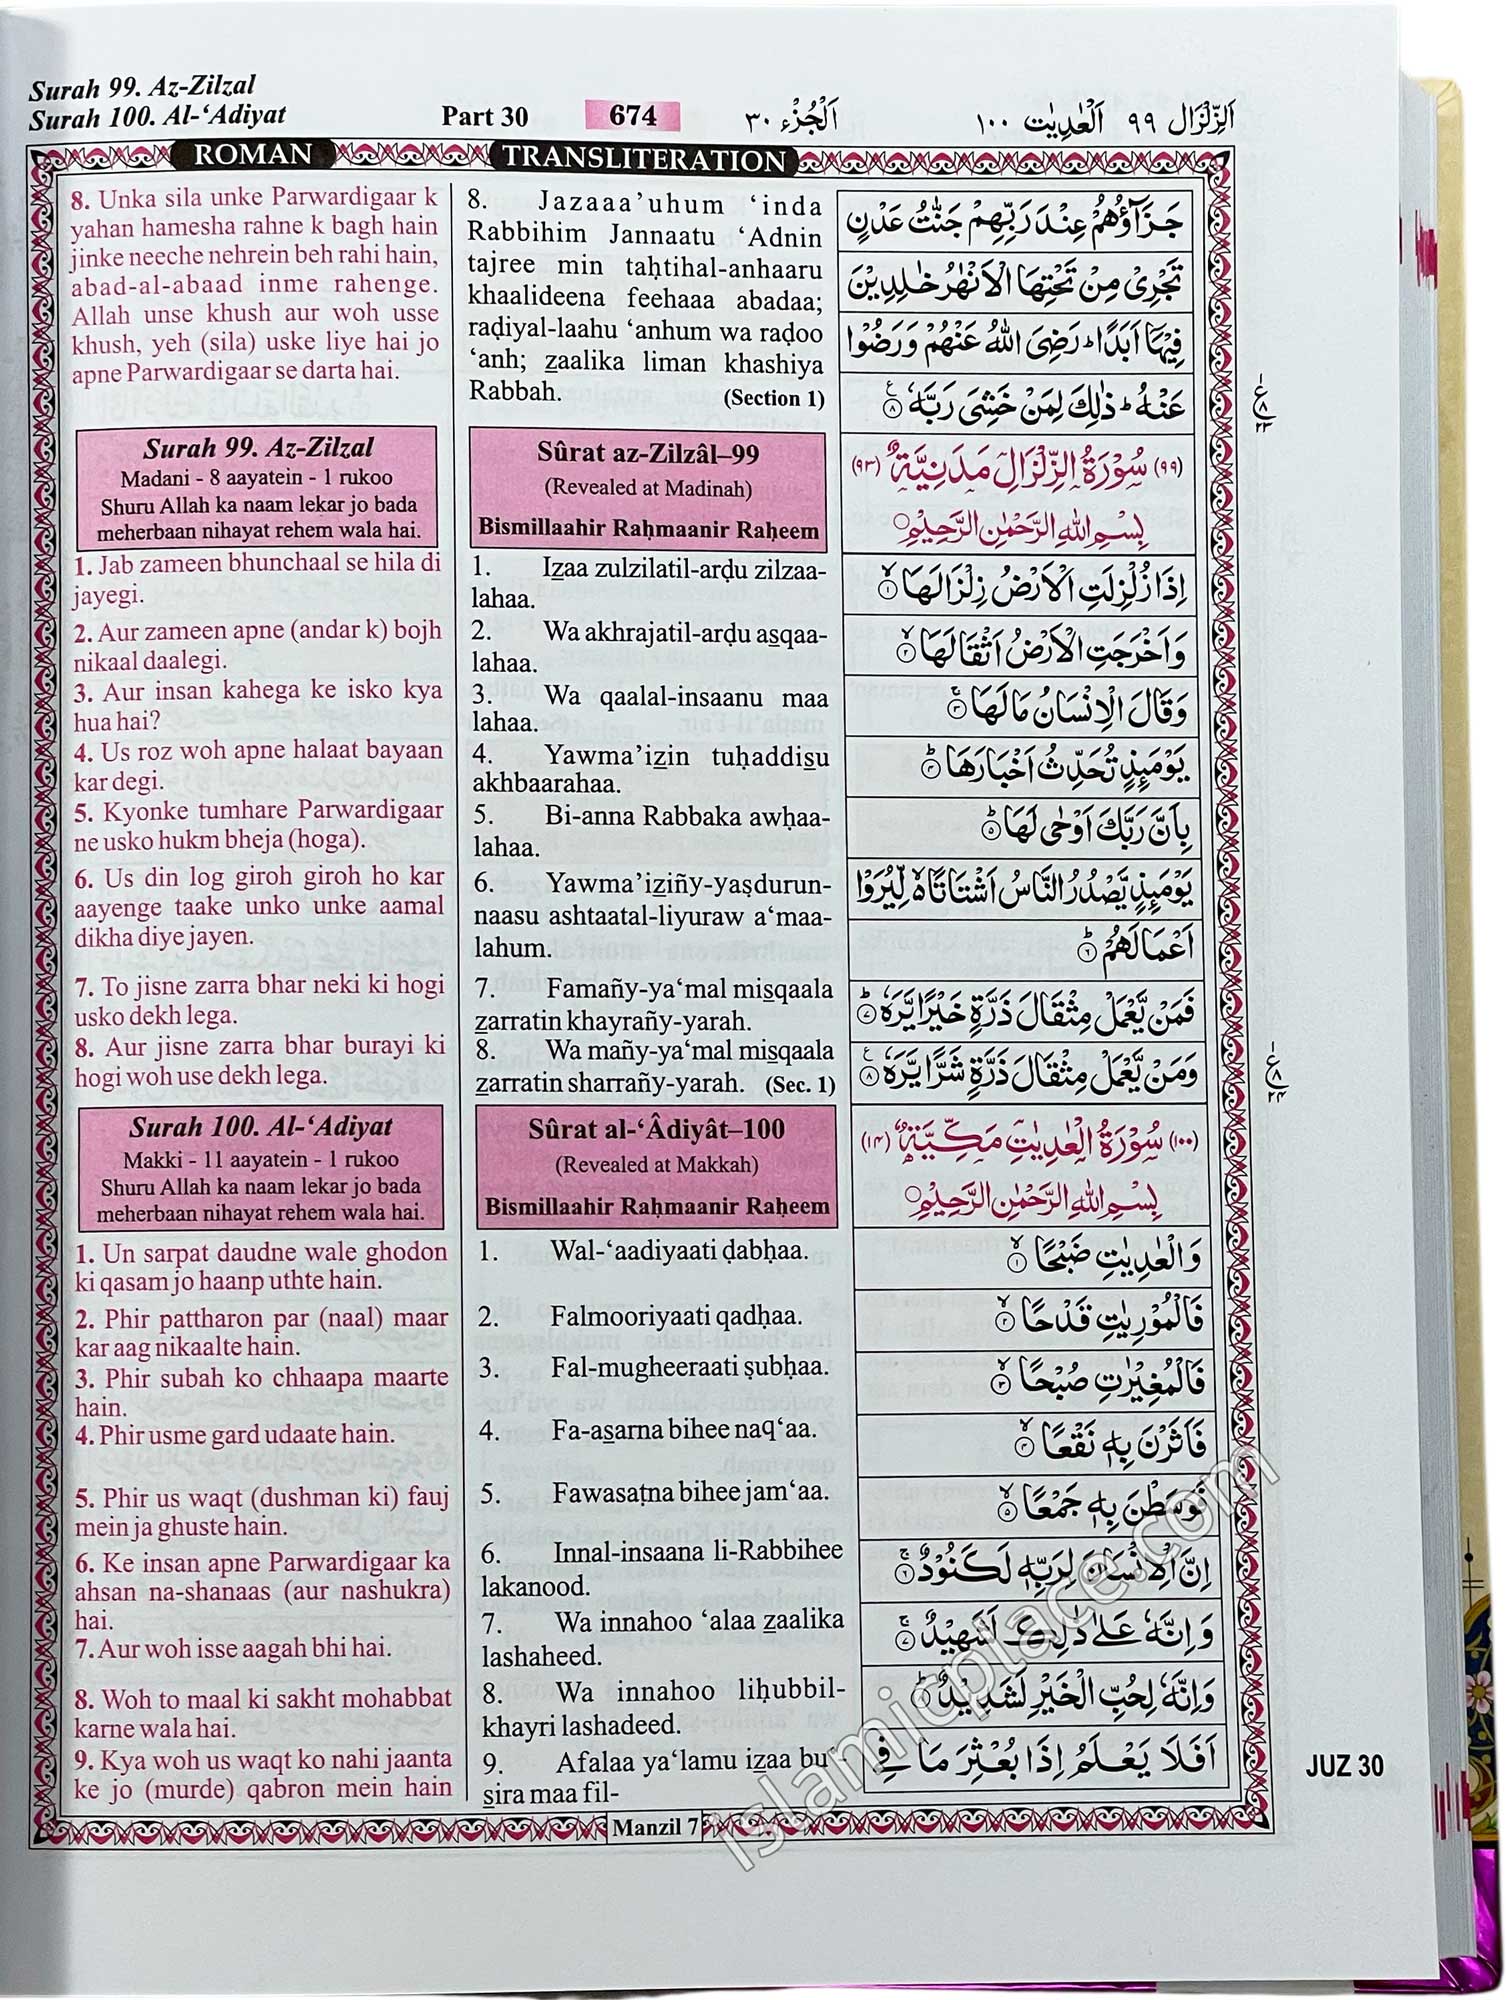 Surah 99. Az-Zilzal
Surah 100. Al-‘Adiyat
Part 30
674
اَلْجُزْء ٣٠
اَلزِّلْزَال ٩٩ اَلْعٰدِيٰت ١٠٠
ROMAN
TRANSLITERATION
8. Unka sila unke Parwardigaar k
yahan hamesha rahne k bagh hain
jinke neeche nehrein beh rahi hain,
abad-al-abaad inme rahenge.
Allah unse khush aur woh usse
khush, yeh (sila) uske liye hai jo
apne Parwardigaar se darta hai.
Surah 99. Az-Zilzal
Madani - 8 aayatein - 1 rukoo
Shuru Allah ka naam lekar jo bada
meherbaan nihayat rehem wala hai.
1. Jab zameen bhunchaal se hila di
jayegi.
2. Aur zameen apne (andar k) bojh
nikaal daalegi.
3. Aur insan kahega ke isko kya
hua hai?
4. Us roz woh apne halaat bayaan
kar degi.
5. Kyonke tumhare Parwardigaar
ne usko hukm bheja (hoga).
6. Us din log giroh giroh ho kar
aayenge taake unko unke aamal
dikha diye jayen.
7. To jisne zarra bhar neki ki hogi
usko dekh lega.
8. Aur jisne zarra bhar burayi ki
hogi woh use dekh lega.
Surah 100. Al-‘Adiyat
Makki - 11 aayatein - 1 rukoo
Shuru Allah ka naam lekar jo bada
meherbaan nihayat rehem wala hai.
1. Un sarpat daudne wale ghodon
ki qasam jo haanp uthte hain.
2. Phir pattharon par (naal) maar
kar aag nikaalte hain.
3. Phir subah ko chhaapa maarte
hain.
4. Phir usme gard udaate hain.
5. Phir us waqt (dushman ki) fauj
mein ja ghuste hain.
6. Ke insan apne Parwardigaar ka
ahsan na-shanaas (aur nashukra)
hai.
7. Aur woh isse aagah bhi hai.
8. Woh to maal ki sakht mohabbat
karne wala hai.
9. Kya woh us waqt ko nahi jaanta
ke jo (murde) qabron mein hain
8. Jazaaa’uhum ‘inda
Rabbihim Jannaatu ‘Adnin
tajree min taḥtihal-anhaaru
khaalideena feehaaa abadaa;
raḍiyal-laahu ‘anhum wa raḍoo
‘anh; z̲aalika liman khashiya
Rabbah. (Section 1)
Sûrat az-Zilzâl–99
(Revealed at Madinah)
Bismillaahir Raḥmaanir Raḥeem
1. Iz̲aa zulzilatil-arḍu zilzaa-
lahaa.
2. Wa akhrajatil-arḍu as̲qaa-
lahaa.
3. Wa qaalal-insaanu maa
lahaa.
4. Yawma’iz̲in tuḥaddis̲u
akhbaarahaa.
5. Bi-anna Rabbaka awḥaa-
lahaa.
6. Yawma’iz̲iñy-yaṣdurun-
naasu ashtaatal-liyuraw a‘maa-
lahum.
7. Famañy-ya‘mal mis̲qaala
z̲arratin khayrañy-yarah.
8. Wa mañy-ya‘mal mis̲qaala
z̲arratin sharrañy-yarah. (Sec. 1)
Sûrat al-‘Âdiyât–100
(Revealed at Makkah)
Bismillaahir Raḥmaanir Raḥeem
1. Wal-‘aadiyaati ḍabḥaa.
2. Falmooriyaati qadḥaa.
3. Fal-mugheeraati ṣubḥaa.
4. Fa-as̲arna bihee naq‘aa.
5. Fawasaṭna bihee jam‘aa.
6. Innal-insaana li-Rabbihee
lakanood.
7. Wa innahoo ‘alaa z̲aalika
lashaheed.
8. Wa innahoo liḥubbil-
khayri lashadeed.
9. Afalaa ya‘lamu iz̲aa bu‘-
s̲ira maa fil-
جَزَآؤُهُمْ عِنْدَ رَبِّهِمْ جَنّٰتُ عَدْنٍ
تَجْرِيْ مِنْ تَحْتِهَا الْاَنْهٰرُ خٰلِدِيْنَ
فِيْهَآ اَبَدًا ؕ رَضِيَ اللّٰهُ عَنْهُمْ وَرَضُوْا
عَنْهُ ؕ ذٰلِكَ لِمَنْ خَشِيَ رَبَّهٗ ۝٨
(٩٩) سُوْرَةُ الزِّلْزَالِ مَدَنِيَّةٌ (٩٣)
بِسْمِ اللّٰهِ الرَّحْمٰنِ الرَّحِيْمِ
اِذَا زُلْزِلَتِ الْاَرْضُ زِلْزَالَهَا ۝١
وَاَخْرَجَتِ الْاَرْضُ اَثْقَالَهَا ۝٢
وَقَالَ الْاِنْسَانُ مَا لَهَا ۝٣
يَوْمَئِذٍ تُحَدِّثُ اَخْبَارَهَا ۝٤
بِاَنَّ رَبَّكَ اَوْحٰى لَهَا ۝٥
يَوْمَئِذٍ يَّصْدُرُ النَّاسُ اَشْتَاتًا ۙ لِّيُرَوْا
اَعْمَالَهُمْ ۝٦
فَمَنْ يَّعْمَلْ مِثْقَالَ ذَرَّةٍ خَيْرًا يَّرَهٗ ۝٧
وَمَنْ يَّعْمَلْ مِثْقَالَ ذَرَّةٍ شَرًّا يَّرَهٗ ۝٨
(١٠٠) سُوْرَةُ الْعٰدِيٰتِ مَكِّيَّةٌ (١٤)
بِسْمِ اللّٰهِ الرَّحْمٰنِ الرَّحِيْمِ
وَالْعٰدِيٰتِ ضَبْحًا ۝١
فَالْمُوْرِيٰتِ قَدْحًا ۝٢
فَالْمُغِيْرٰتِ صُبْحًا ۝٣
فَاَثَرْنَ بِهٖ نَقْعًا ۝٤
فَوَسَطْنَ بِهٖ جَمْعًا ۝٥
اِنَّ الْاِنْسَانَ لِرَبِّهٖ لَكَنُوْدٌ ۝٦
وَاِنَّهٗ عَلٰى ذٰلِكَ لَشَهِيْدٌ ۝٧
وَاِنَّهٗ لِحُبِّ الْخَيْرِ لَشَدِيْدٌ ۝٨
اَفَلَا يَعْلَمُ اِذَا بُعْثِرَ مَا فِي
١ ع ٨ ٢٣
١ ع ٨ ٢٤
JUZ 30
Manzil 7
islamicplace.com